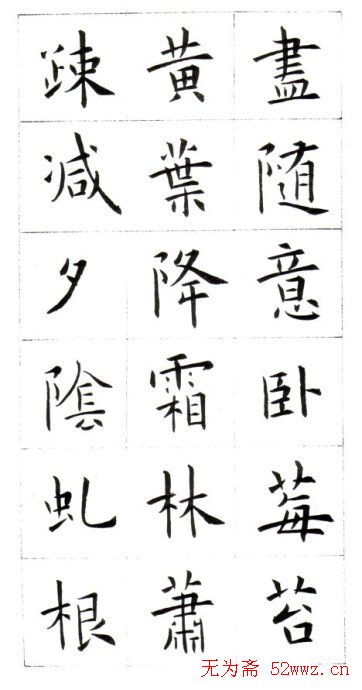 盡随意卧莓苔
黄葉降霜林蕭
踈减夕陰虬根
无为斋 52wwz.cn